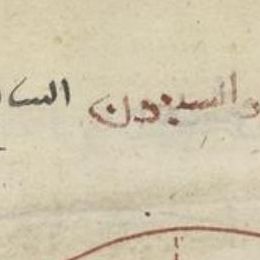 والسبعون السا